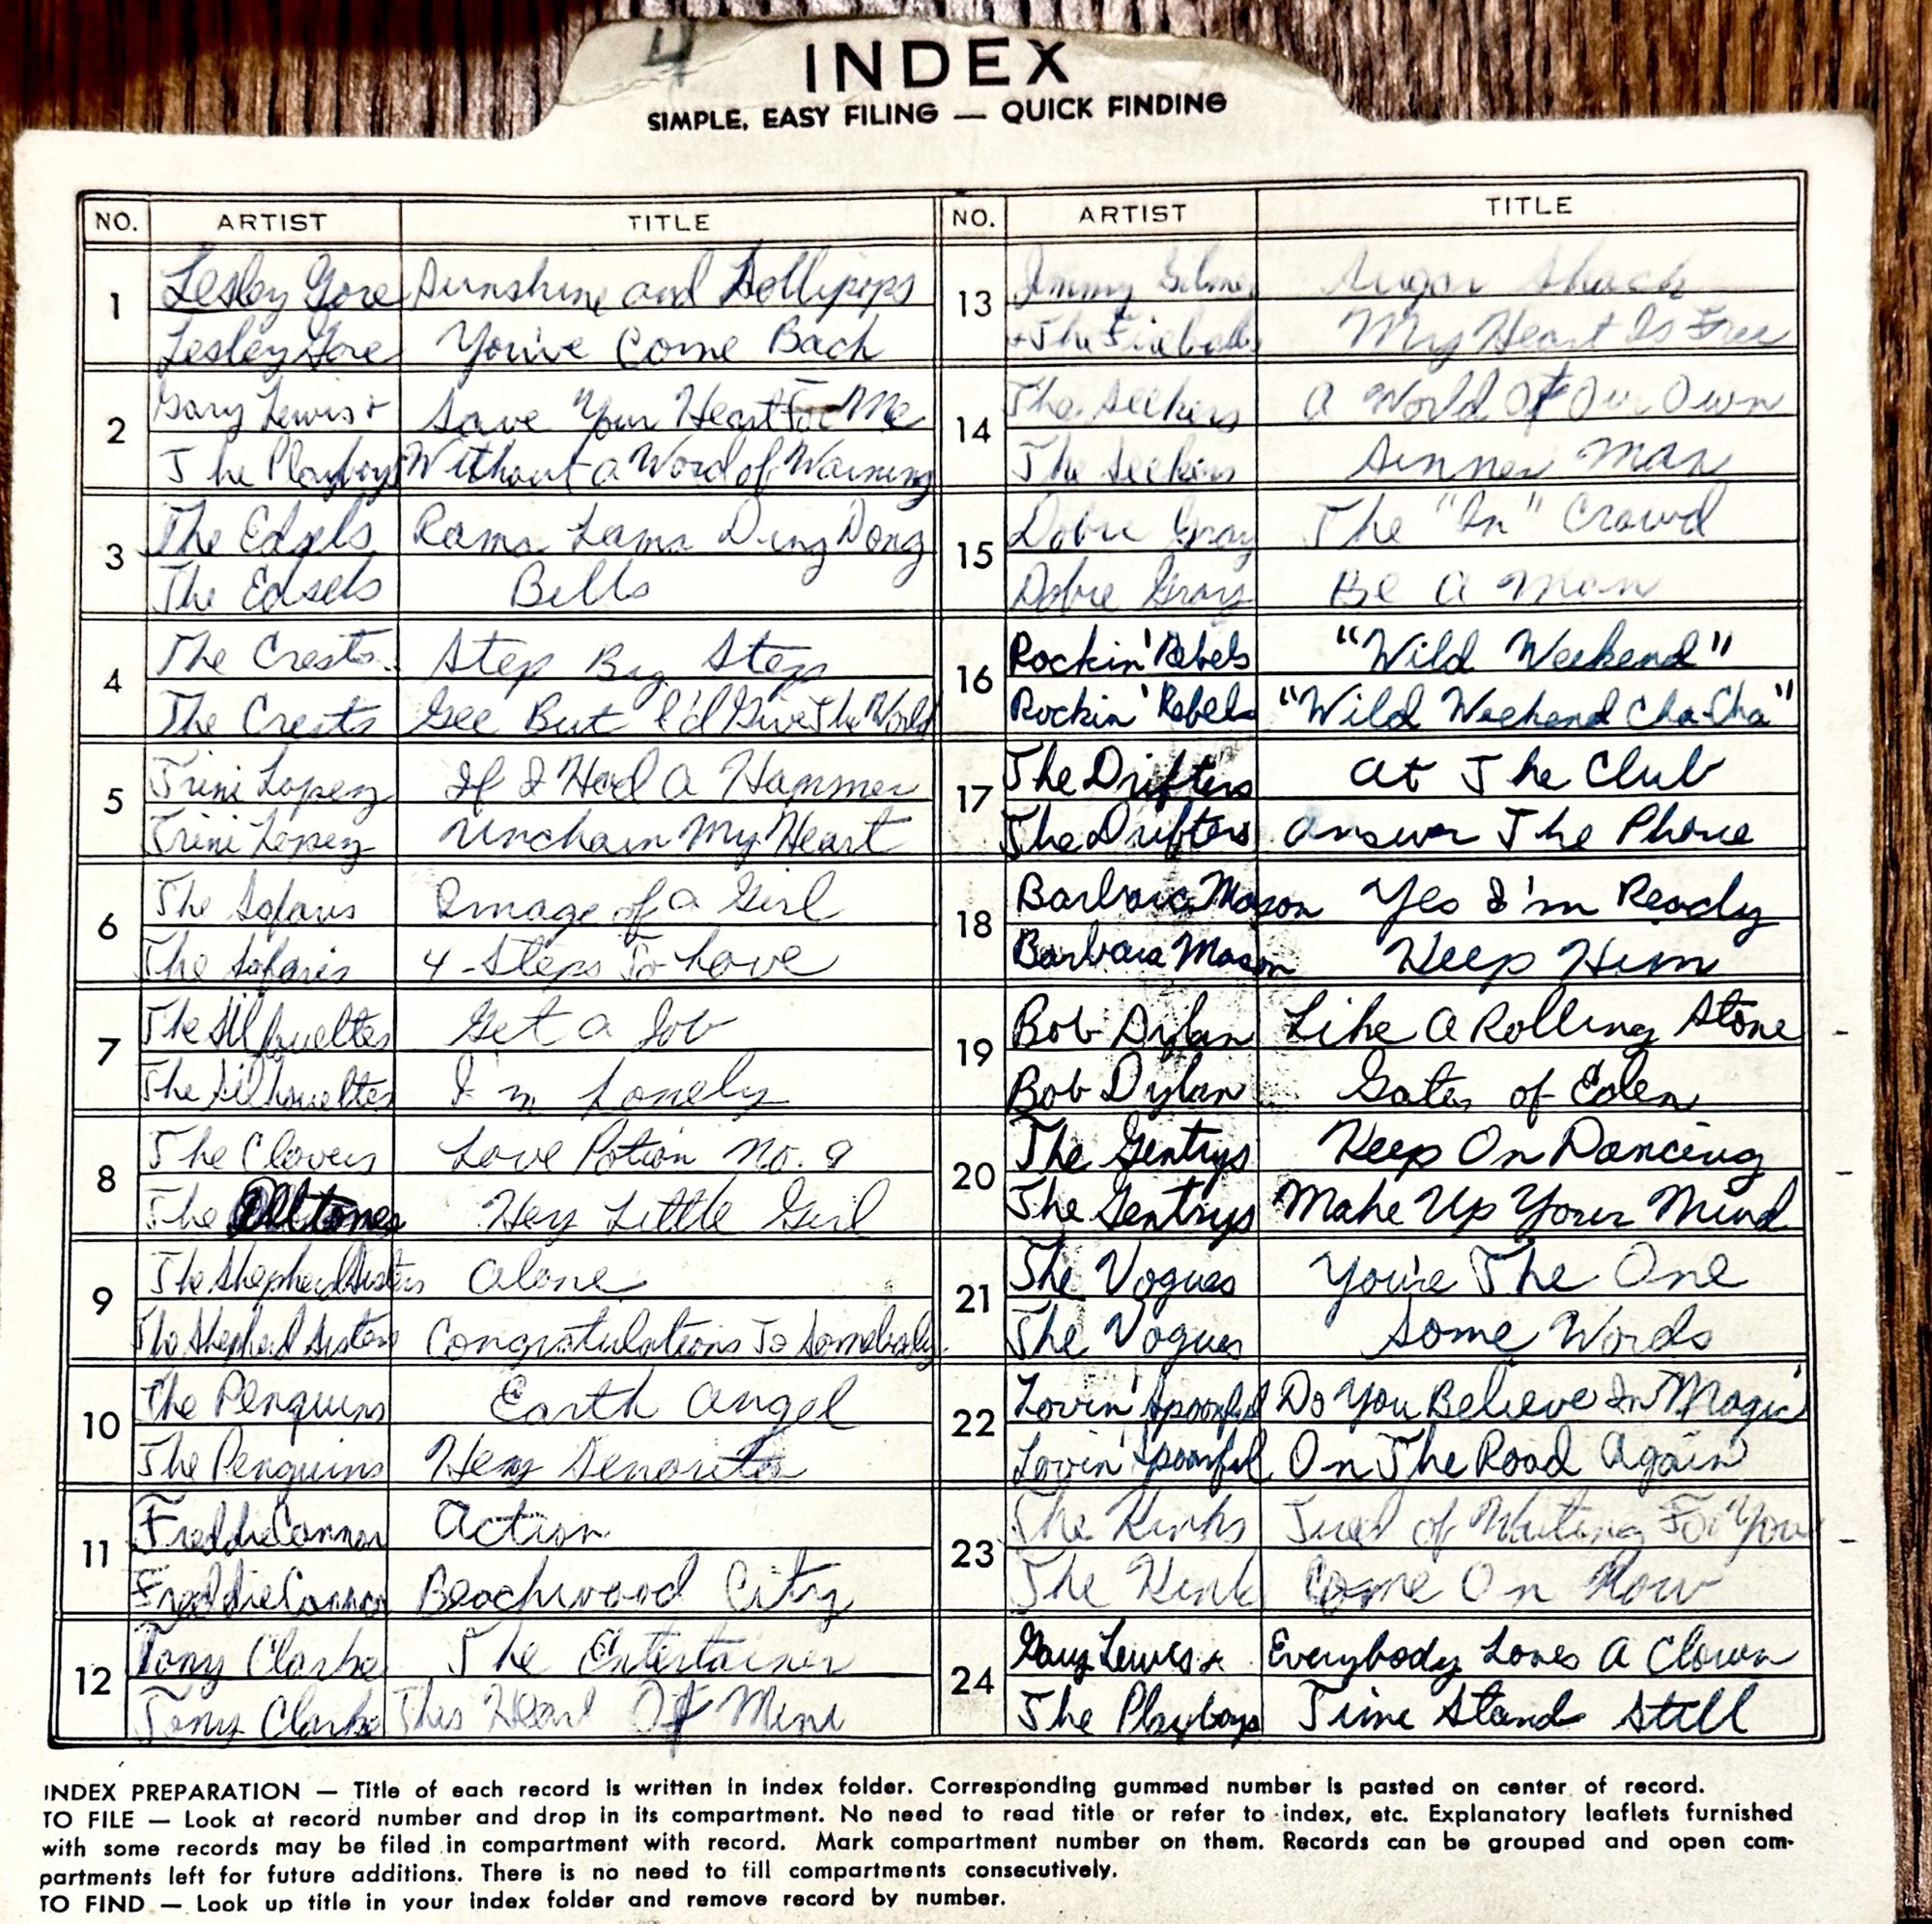 4
INDEX
SIMPLE, EASY FILING — QUICK FINDING
NO. ARTIST TITLE NO. ARTIST TITLE
1 Lesley Gore Sunshine and Lollipops
Lesley Gore You've Come Back
2 Gary Lewis + Save Your Heart For Me
The Playboys Without a Word of Warning
3 The Edsels Rama Lama Ding Dong
The Edsels Bells
4 The Crests Step By Step
The Crests Gee But I'd Give The World
5 Trini Lopez If I Had A Hammer
Trini Lopez Unchain My Heart
6 The Safaris Image of a Girl
The Safaris 4-Steps To Love
7 The Silhouettes Get a Job
The Silhouettes I'm Lonely
8 The Clovers Love Potion No. 9
The Delltones Hey Little Girl
9 The Shepherd Sisters Alone
The Shepherd Sisters Congratulations To Somebody
10 The Penguins Earth Angel
The Penguins Hey Senorita
11 Freddie Cannon Action
Freddie Cannon Beachwood City
12 Tony Clarke The Entertainer
Tony Clarke This Heart Of Mine
13 Jimmy Gilmer Sugar Shack
+ The Fireballs My Heart Is Free
14 The Seekers A World Of Our Own
The Seekers Sinner Man
15 Dobie Gray The "In" Crowd
Dobie Gray Be A Man
16 Rockin' Rebels "Wild Weekend"
Rockin' Rebels "Wild Weekend Cha-Cha"
17 The Drifters At The Club
The Drifters Answer The Phone
18 Barbara Mason Yes I'm Ready
Barbara Mason Keep Him
19 Bob Dylan Like A Rolling Stone
Bob Dylan Gates of Eden
20 The Gentrys Keep On Dancing
The Gentrys Make Up Your Mind
21 The Vogues You're The One
The Vogues Some Words
22 Lovin' Spoonful Do You Believe In Magic
Lovin' Spoonful On The Road Again
23 The Kinks Tired of Waiting For You
The Kinks Come On Now
24 Gary Lewis & Everybody Loves A Clown
The Playboys Time Stand Still
INDEX PREPARATION — Title of each record is written in index folder. Corresponding gummed number is pasted on center of record.
TO FILE — Look at record number and drop in its compartment. No need to read title or refer to index, etc. Explanatory leaflets furnished
with some records may be filed in compartment with record. Mark compartment number on them. Records can be grouped and open com-
partments left for future additions. There is no need to fill compartments consecutively.
TO FIND — Look up title in your index folder and remove record by number.